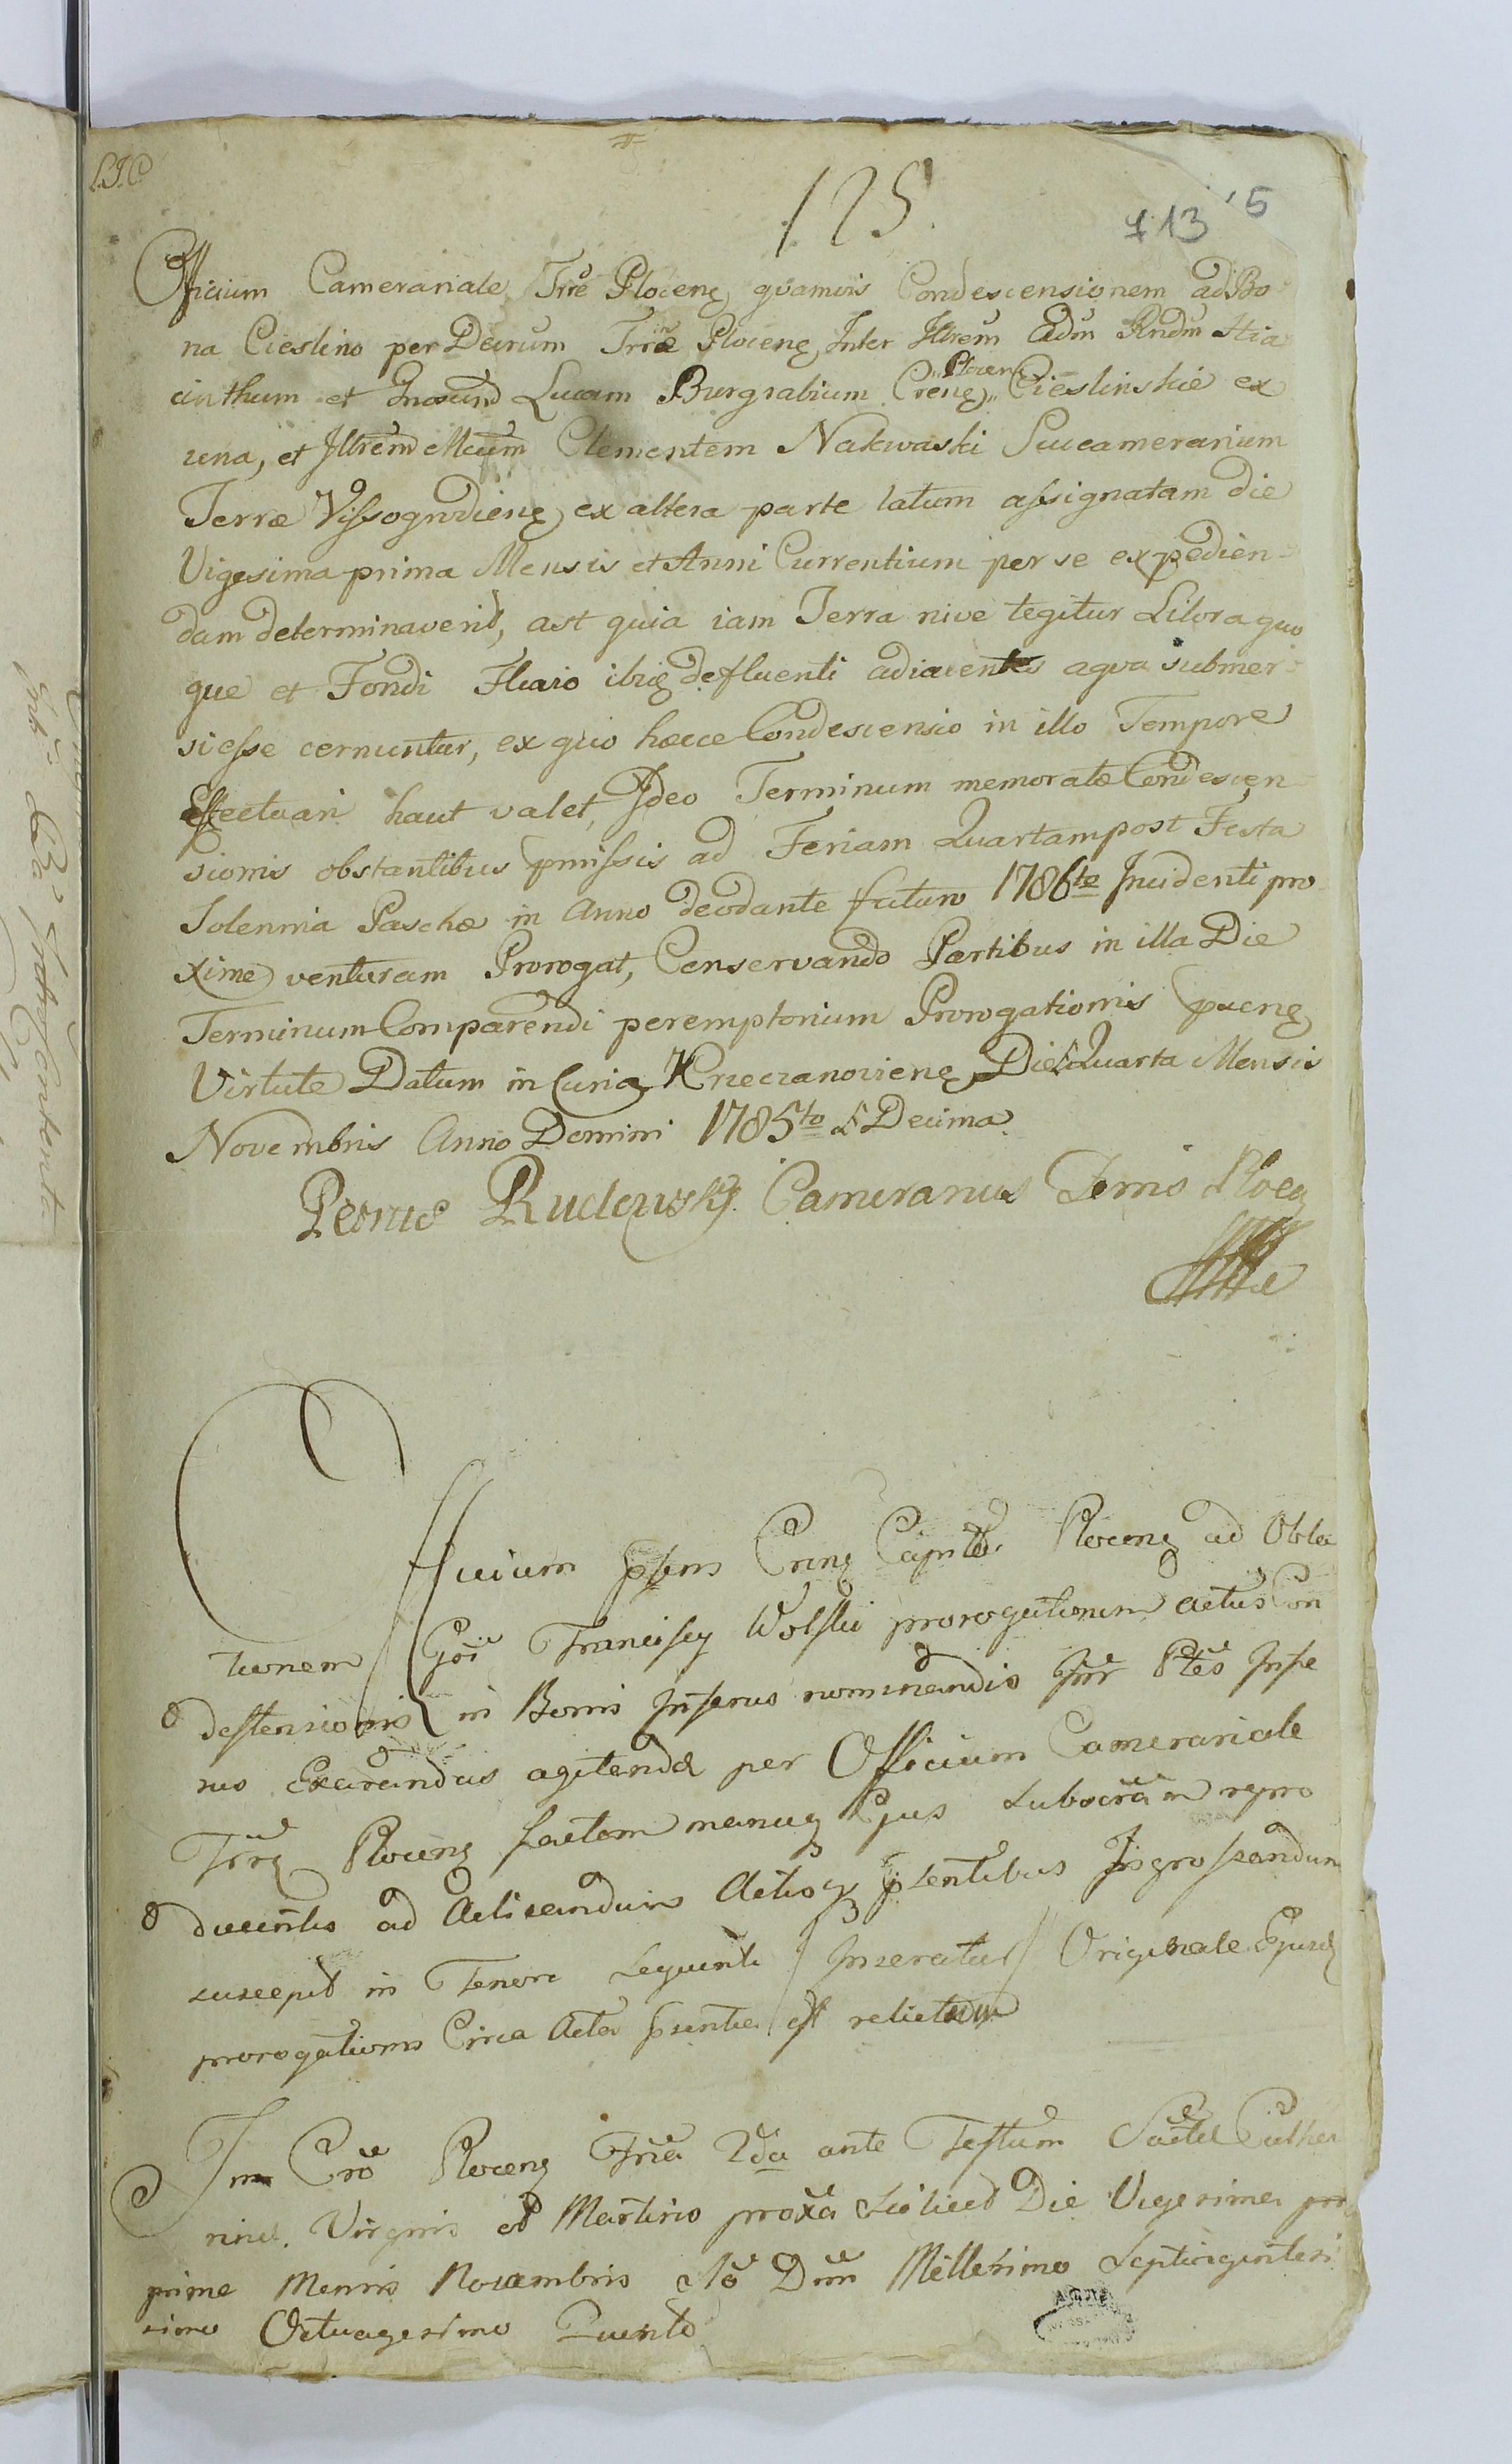 L.I.C.
125.
113 5
Officium Camerariale Trre Plocens, quamvis Condescensionem ad Bo
na Cieslino per Decrum Trrae Plocens Inter Illrem Adm Rndm Hia
cinthum et Gnosum Lucam Burgrabium Crens „Plocen„ Cieslinskie ex
una, et Illrem Mcum Clementem Nakwaski Succamerarium
Terrae Vissogrodiens ex altera parte latum assignatam die
Vigesima prima Mensis et Anni Currentium per se expedien-
dam determinaverit, ast quia iam Terra nive tegitur Litora quo
que et Fondi Fluvio ibiq defluenti adiacentes aqua submer-
si esse cernuntur, ex quo haece Condescensio in illo Tempore
Effectuari haut valet, Ideo Terminum memoratae Condescen
sionis obstantibus pmissis ad Feriam Quartam post Festa
Solennia Paschae in Anno deodante futuro 1786to Incidenti pro
xime venturam Prorogat, Conservando Partibus in illa Die
Terminum Comparendi peremptorium Prorogationis
Virtute Datum in Curia Krzeczanoviens Die Quarta Mensis
Novembris Anno Domini 1785to Decima
Petrus Rudowsky Camerarius Plocen
Officium psens Crens Capitle Plocens ad Obla
tionem Gosi Francisci Wolski prorogationem actus Con
descensionis in Bonis Inferius nominandis Intr Ptes Infe
rius Exarandas agitendae per Officium Camerariale
Trrs Plocens factam manuq Ejus subscram repro
ducentis ad Acticandum Actisq psentibus Ingrossandum
suscepit in Tenore sequenti / Inseratur / Originale Ejusd
prorogationis Circa Acta psentia est relictum
In Cro Plocens Fria 2da ante Festum Sactae Catha
rinae Virginis et Martiris proxa scilicet Die Vigesima pri
prima Mensis Novembris Ao Dni Millesimo Septingentesi
simo Octuagesimo Quinto